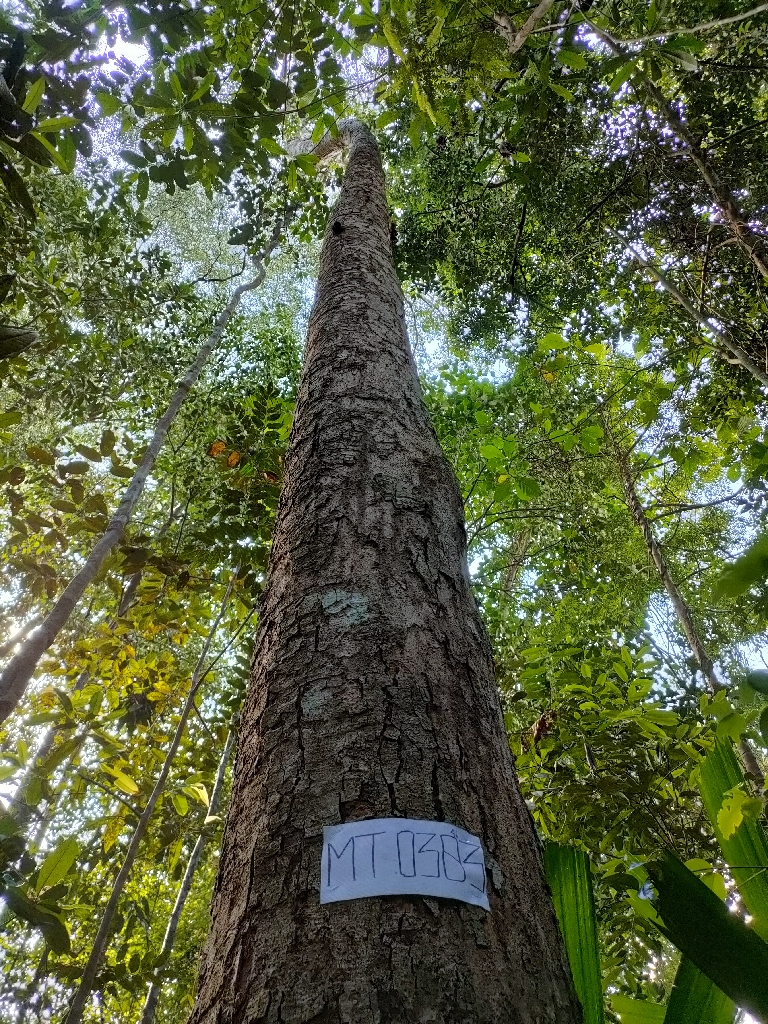 MT 0383